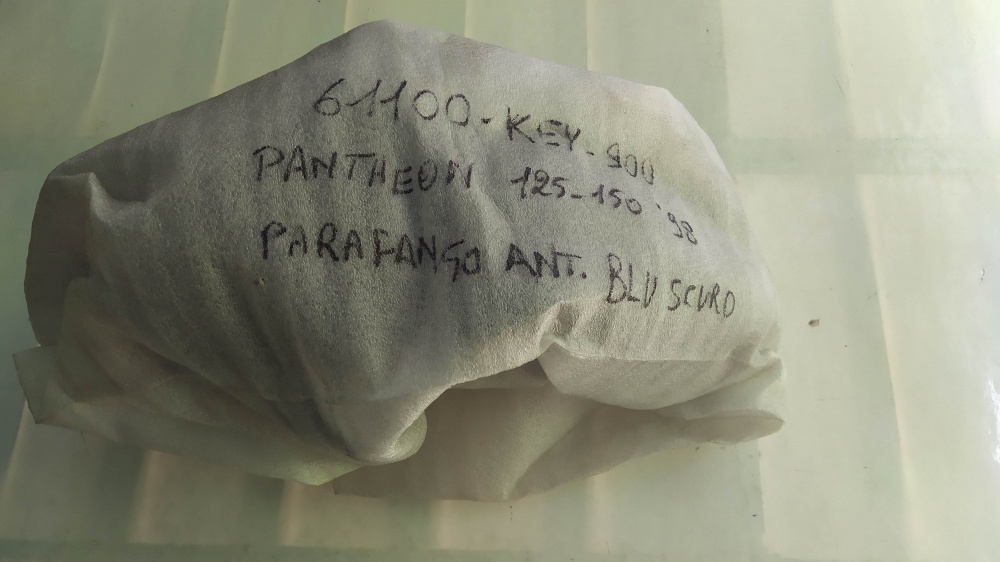 61100-KEY-900
PANTHEON 125-150 '98
PARAFANGO ANT. BLU SCURO